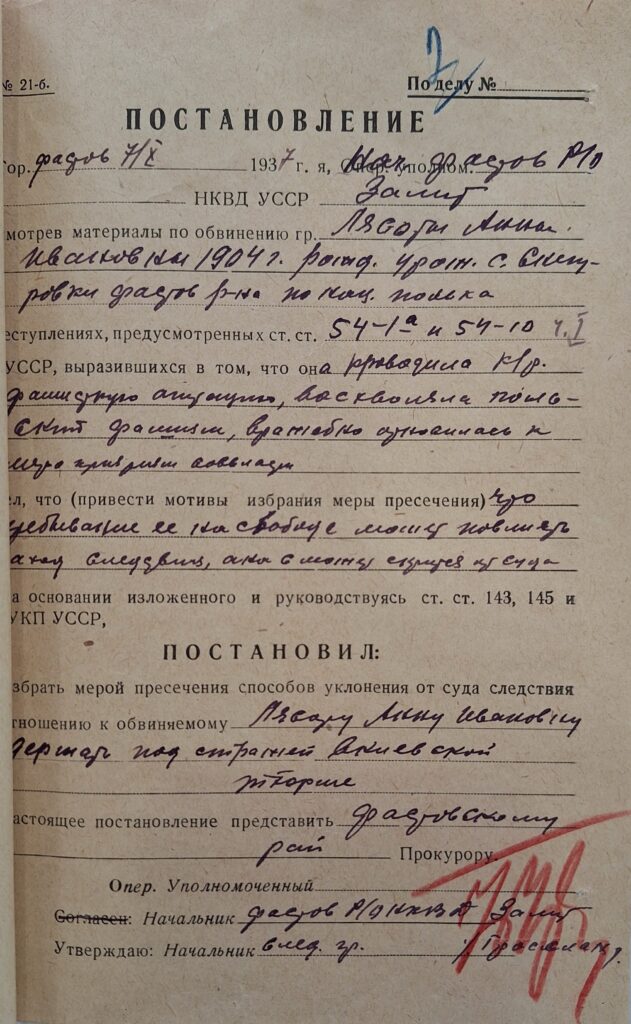 № 21-б.
По делу №
7
ПОСТАНОВЛЕНИЕ
гор. Фастов 7/X 1937 г. я, Опер. уполном. Нач. Фастов Р/о
НКВД УССР Залит
мотрев материалы по обвинению гр. Лясоты Анны
Ивановны 1904 г. рожд. урож. с.
ровки Фастов р-на по нац. полька
еступлениях, предусмотренных ст. ст. 54-1а и 54-10 ч. I
УССР, выразившихся в том, что она проводила к/р.
фашистскую агитацию, восхваляла поль-
ский фашизм, враждебно относилась к
мероприятиям соввласти
ел, что (привести мотивы избрания меры пресечения) что
пребывание ее на свободе может повлиять
на ход следствия, а она может скрыться от суда
а основании изложенного и руководствуясь ст. ст. 143, 145 и
УКП УССР,
ПОСТАНОВИЛ:
збрать мерой пресечения способов уклонения от суда следствия
тношению к обвиняемому Лясоту Анну Ивановну
держать под стражей в киевской
тюрьме
астоящее постановление представить Фастовскому
рай Прокурору.
Опер. Уполномоченный
Согласен: Начальник Фастов Р/о НКВД Залит
Утверждаю: Начальник след. гр.